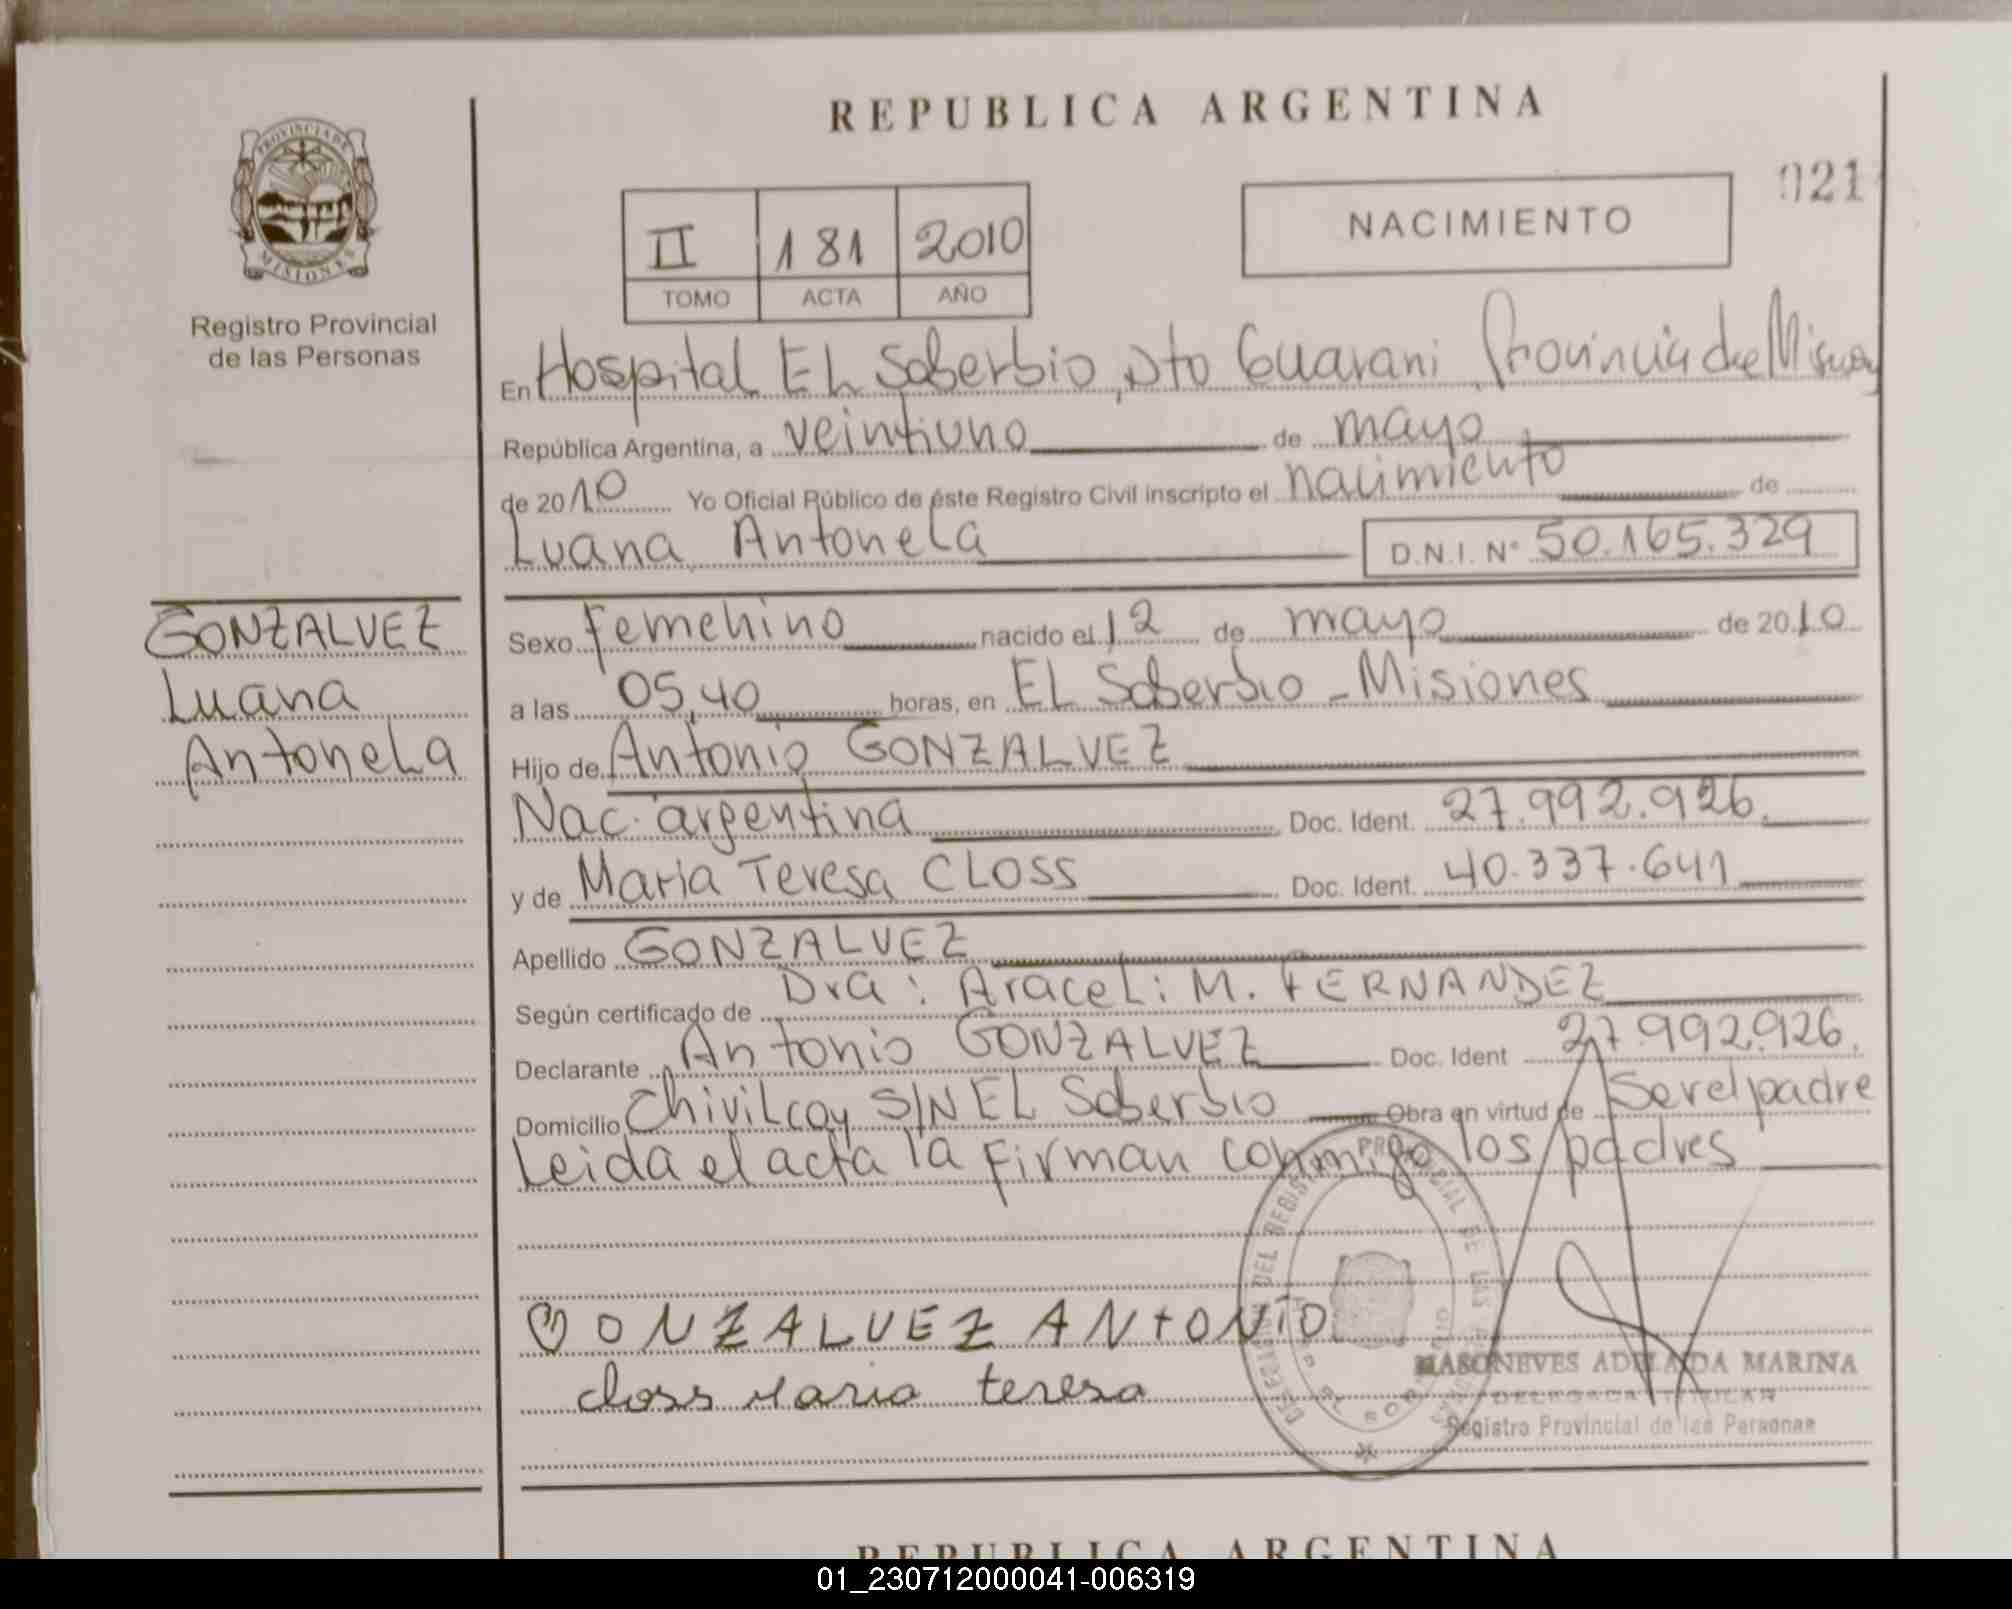 REPUBLICA ARGENTINA
021
PROVINCIA DE
MISIONES
Registro Provincial
de las Personas
II 181 2010
TOMO ACTA AÑO
NACIMIENTO
En Hospital EL Soberbio, Dto Guarani Provincia de Misiones
República Argentina, a veintiuno de mayo
de 2010 Yo Oficial Público de éste Registro Civil inscripto el nacimiento de
Luana Antonela D.N.I. N° 50.165.329
GONZALVEZ
Luana
Antonela
Sexo Femenino nacido el 12 de mayo de 2010
a las 05,40 horas, en EL Soberbio - Misiones
Hijo de Antonio GONZALVEZ
Nac. argentina Doc. Ident. 27.992.926.
y de Maria Teresa CLOSS Doc. Ident. 40.337.641
Apellido GONZALVEZ
Según certificado de Dra: Araceli M. FERNANDEZ
Declarante Antonio GONZALVEZ Doc. Ident 27.992.926.
Domicilio Chivilcoy S/N EL Soberbio Obra en virtud de Ser el padre
Leida el acta la firman conmigo los padres
GONZALVEZ ANTONIO
closs maria teresa
DEL REGISTRO PROVINCIAL DE LAS
MASONEVES ADELAIDA MARINA
DELEGADA TITULAR
Registro Provincial de las Personas
REPUBLICA ARGENTINA
01_230712000041-006319